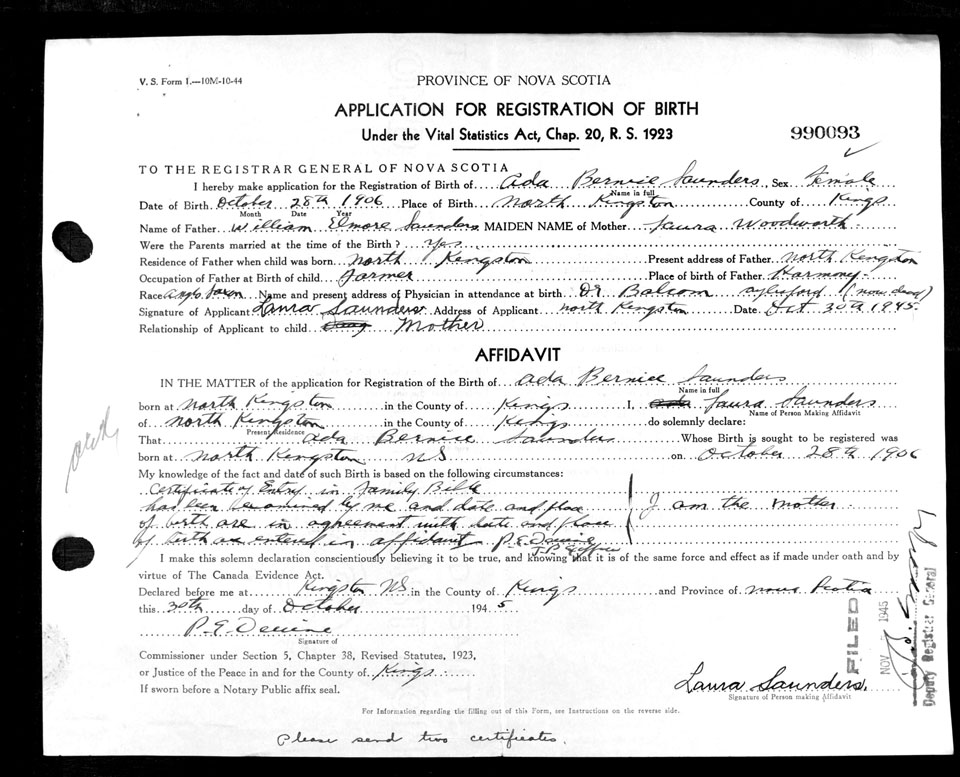 V. S. Form 1.—10M-10-44
PROVINCE OF NOVA SCOTIA
APPLICATION FOR REGISTRATION OF BIRTH
Under the Vital Statistics Act, Chap. 20, R. S. 1923
990093
TO THE REGISTRAR GENERAL OF NOVA SCOTIA
I hereby make application for the Registration of Birth of Ada Bernice Saunders, Sex female
Name in full
Date of Birth October 28th 1906 Place of Birth North Kingston County of Kings
Month Date Year
Name of Father William Elmore Saunders MAIDEN NAME of Mother Laura Woodworth
Were the Parents married at the time of the Birth? Yes
Residence of Father when child was born North Kingston Present address of Father North Kingston
Occupation of Father at Birth of child Farmer Place of Birth of Father Harmony
Race Anglo Saxon Name and present address of Physician in attendance at birth Dr Balcom Aylesford (now dead)
Signature of Applicant Laura Saunders Address of Applicant North Kingston Date Oct 30th 1945
Relationship of Applicant to child Mother
AFFIDAVIT
IN THE MATTER of the application for Registration of the Birth of Ada Bernice Saunders
Name in full
born at North Kingston in the County of Kings I, Laura Saunders
Name of Person Making Affidavit
of North Kingston in the County of Kings do solemnly declare:
Present Residence
That Ada Bernice Saunders Whose Birth is sought to be registered was
born at North Kingston NS on October 28th 1906
My knowledge of the fact and date of such Birth is based on the following circumstances:
Certificate of Entry in Family Bible
has been examined by me and date and place I am the mother
of birth are in agreement with date and place
of birth as entered in affidavit P. E. Devine
I make this solemn declaration conscientiously believing it to be true, and knowing that it is of the same force and effect as if made under oath and by
virtue of The Canada Evidence Act.
Declared before me at Kingston NS in the County of Kings and Province of Nova Scotia
this 30th day of October 1945
P. E. Devine
Signature of
Commissioner under Section 5, Chapter 38, Revised Statutes, 1923,
or Justice of the Peace in and for the County of Kings
If sworn before a Notary Public affix seal.
Laura Saunders
Signature of Person making Affidavit
FILED
NOV 1945
Deputy Registrar General
For Information regarding the filling out of this Form, see Instructions on the reverse side.
Please send two certificates.